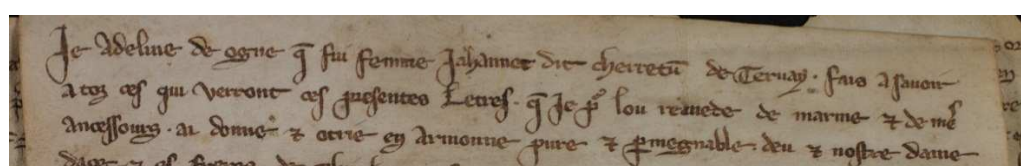 Je Adeline de ogne q̄ fui femme Johannet dit cherretū de Ternay · fais a savoir
a toz ces qui verront ces presentes Letres · q̄ Je pͦ lou remede de marme ⁊ de mes
ancessours · ai donne ⁊ otrie en armonne pure ⁊ permegnable deu ⁊ nostre dame